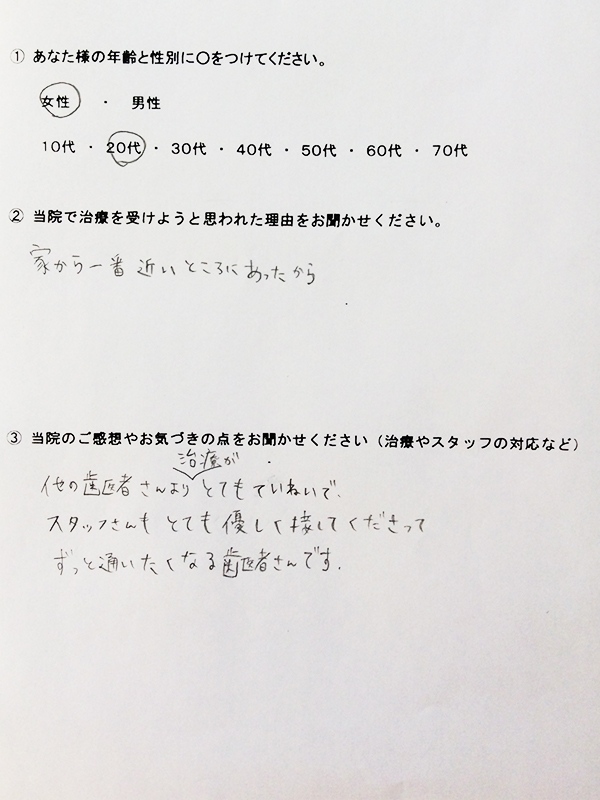 ① あなた様の年齢と性別に〇をつけてください。
女性 ・ 男性
10代 ・ 20代 ・ 30代 ・ 40代 ・ 50代 ・ 60代 ・ 70代
② 当院で治療を受けようと思われた理由をお聞かせください。
家から一番近いところにあったから
③ 当院のご感想やお気づきの点をお聞かせください（治療やスタッフの対応など）
治療が
他の歯医者さんよりとてもていねいで、
スタッフさんもとても優しく接してくださって
ずっと通いたくなる歯医者さんです．